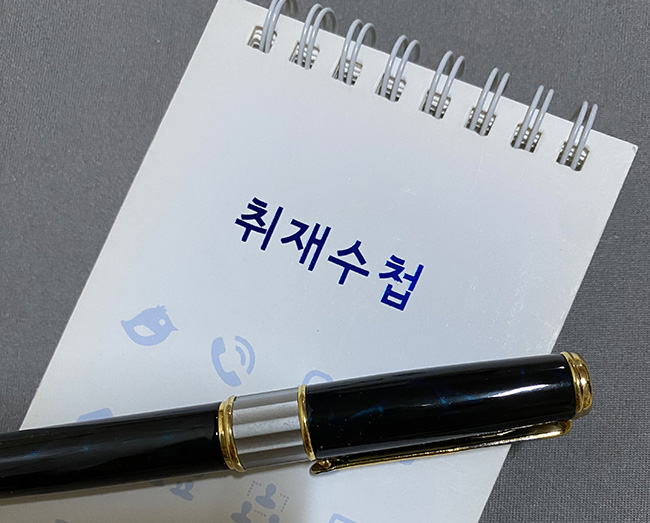 취재수첩